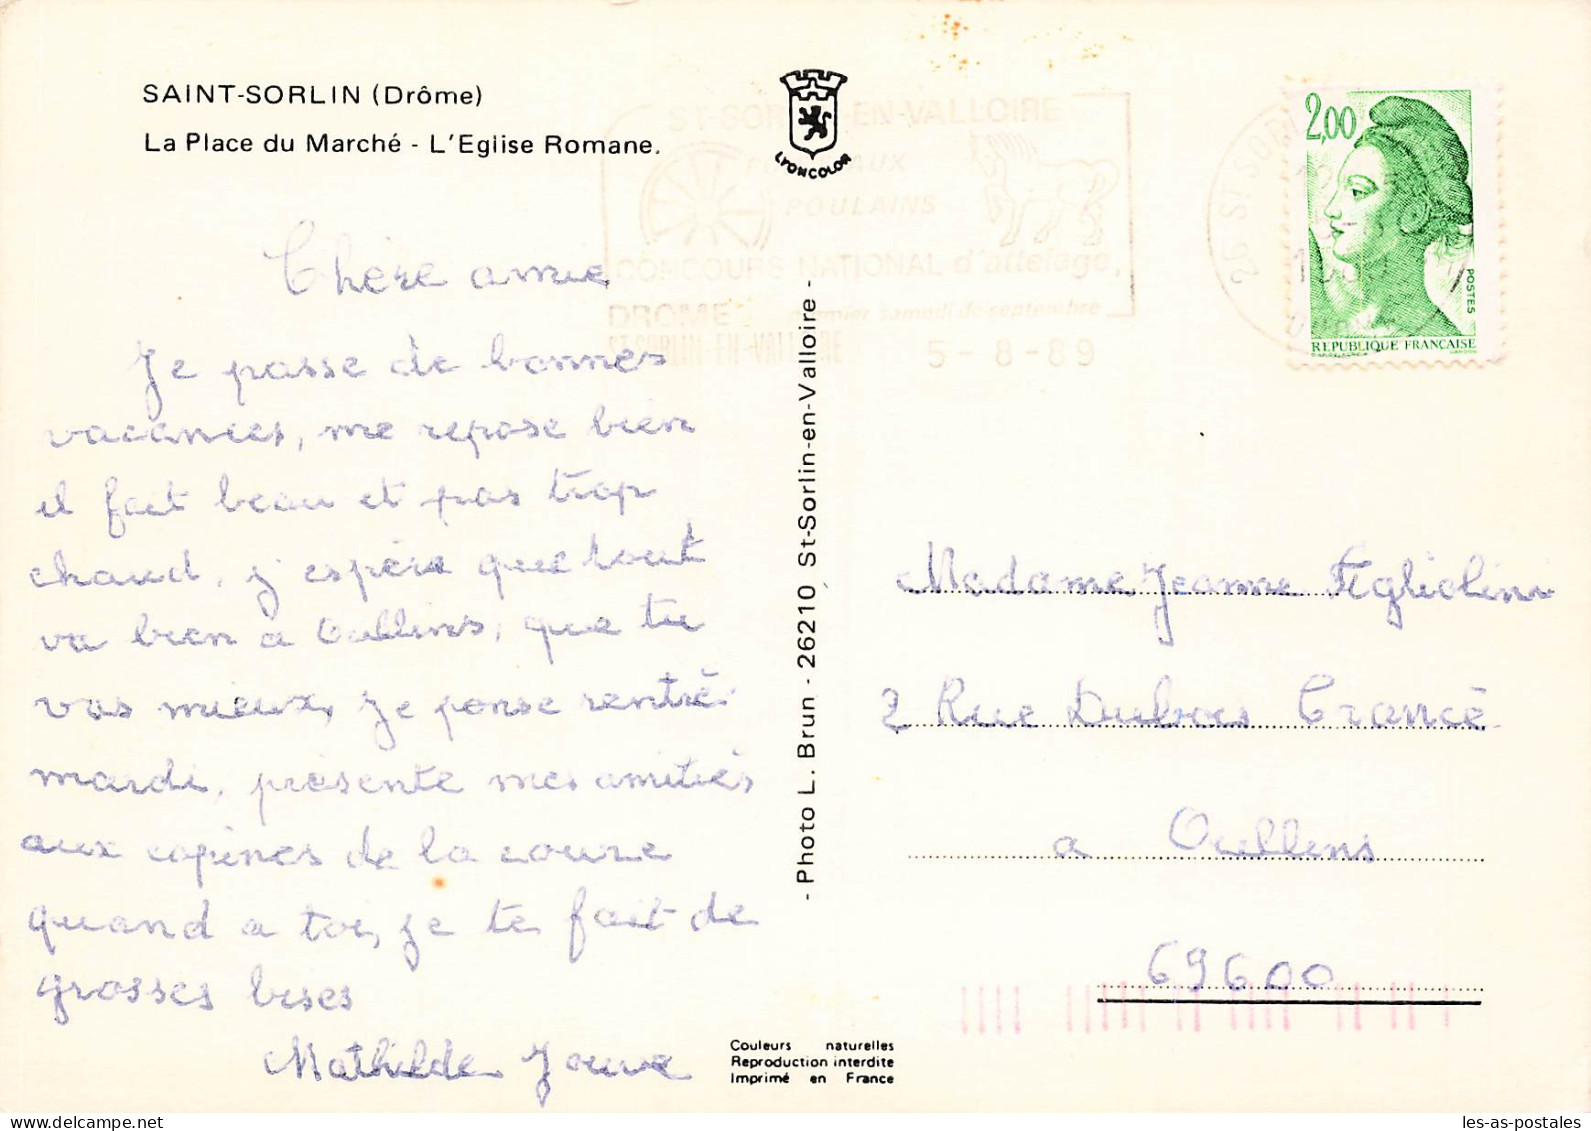 SAINT-SORLIN (Drôme)
La Place du Marché - L'Eglise Romane.
LYONCOLOR
EN-VALLOIRE
POULAINS
CONCOURS NATIONAL d'attelage,
DROME
dernier samedi de septembre
ST-SORLIN-EN-VALLOIRE
5-8-89
26 ST SORLIN
2,00
POSTES
REPUBLIQUE FRANÇAISE
Chère amie
Je passe de bonnes
vacances, me repose bien
il fait beau et pas trop
chaud, j'espère que tout
va bien a Oullins, que tu
vas mieux, je pense rentré
mardi, présente mes amitiés
aux copines de la courre
quand a toi, je te fait de
grosses bises
Mathilde Jouve
- Photo L. Brun - 26210 St-Sorlin-en-Valloire -
Madame Jeanne Figliolini
2 Rue Dubois Crancé
a Oullins
69600
Couleurs naturelles
Reproduction interdite
Imprimé en France
les-as-postales